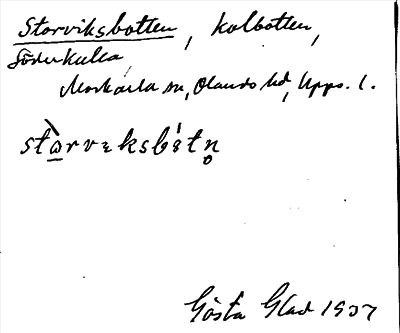 Storviksbotten, kolbotten,
Söderkulla,
Morkarla sn, Olands hd, Upps. l.
Gösta Glad 1937